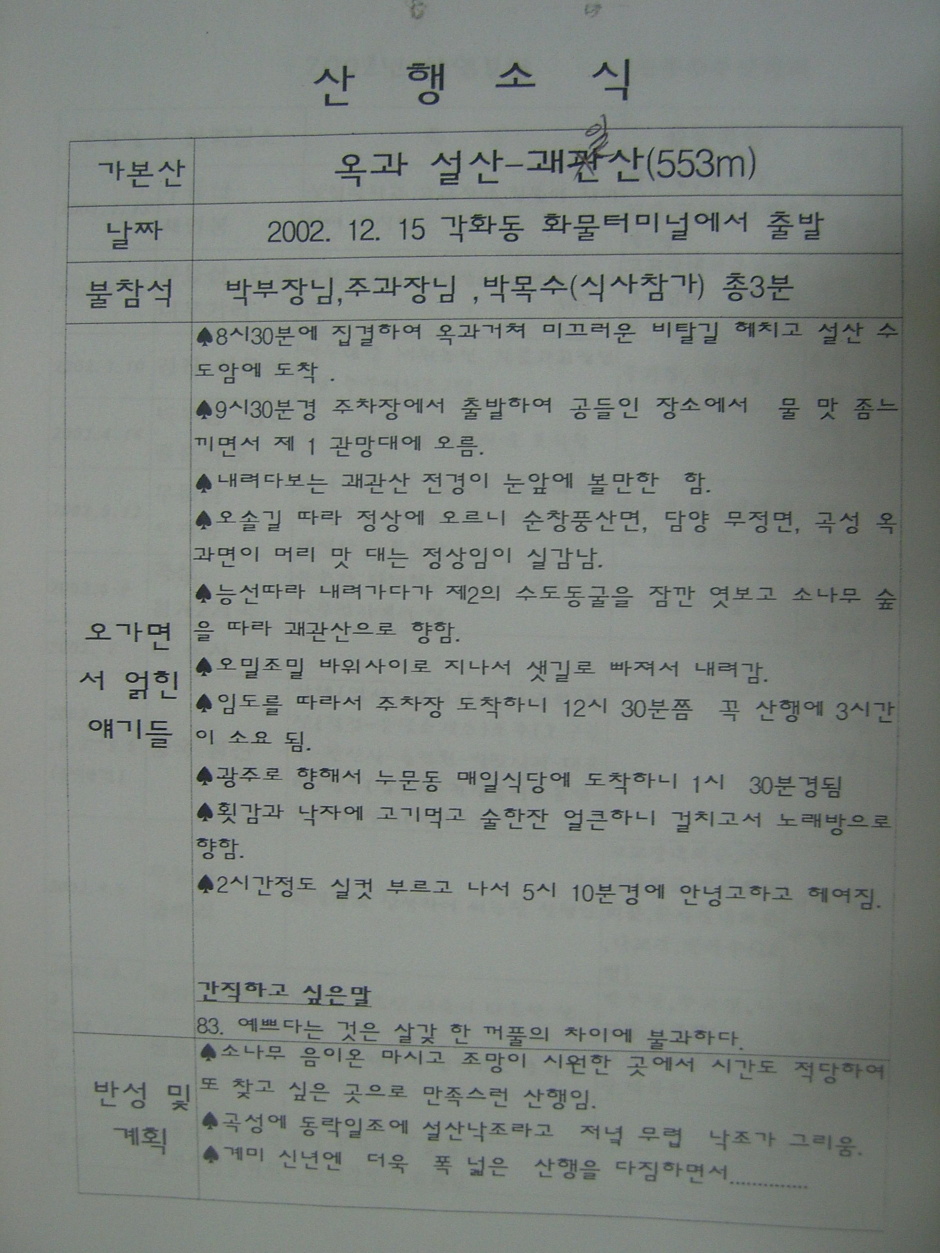 산 행 소 식
가본산 옥과 설산-괘관산(553m)
날짜 2002. 12. 15 각화동 화물터미널에서 출발
불참석 박부장님,주과장님 ,박목수(식사참가) 총3분
♠8시30분에 집결하여 옥과거쳐 미끄러운 비탈길 헤치고 설산 수
도암에 도착 .
♠9시30분경 주차장에서 출발하여 공들인 장소에서 물 맛 좀느
끼면서 제 1 관망대에 오름.
♠내려다보는 괘관산 전경이 눈앞에 볼만한 함.
♠오솔길 따라 정상에 오르니 순창풍산면, 담양 무정면, 곡성 옥
과면이 머리 맛 대는 정상임이 실감남.
♠능선따라 내려가다가 제2의 수도동굴을 잠깐 엿보고 소나무 숲
을 따라 괘관산으로 향함.
♠오밀조밀 바위사이로 지나서 샛길로 빠져서 내려감.
♠임도를 따라서 주차장 도착하니 12시 30분쯤 꼭 산행에 3시간
이 소요 됨.
♠광주로 향해서 누문동 매일식당에 도착하니 1시 30분경됨
♠횟감과 낙자에 고기먹고 술한잔 얼큰하니 걸치고서 노래방으로
향함.
♠2시간정도 실컷 부르고 나서 5시 10분경에 안녕고하고 헤여짐.
오가면
서 얽힌
얘기들
간직하고 싶은말
83. 예쁘다는 것은 살갗 한 꺼풀의 차이에 불과하다.
반성 및
계획
♠소나무 음이온 마시고 조망이 시원한 곳에서 시간도 적당하여
또 찾고 싶은 곳으로 만족스런 산행임.
♠곡성에 동락일조에 설산낙조라고 저녘 무렵 낙조가 그리움.
♠계미 신년엔 더욱 폭 넓은 산행을 다짐하면서............